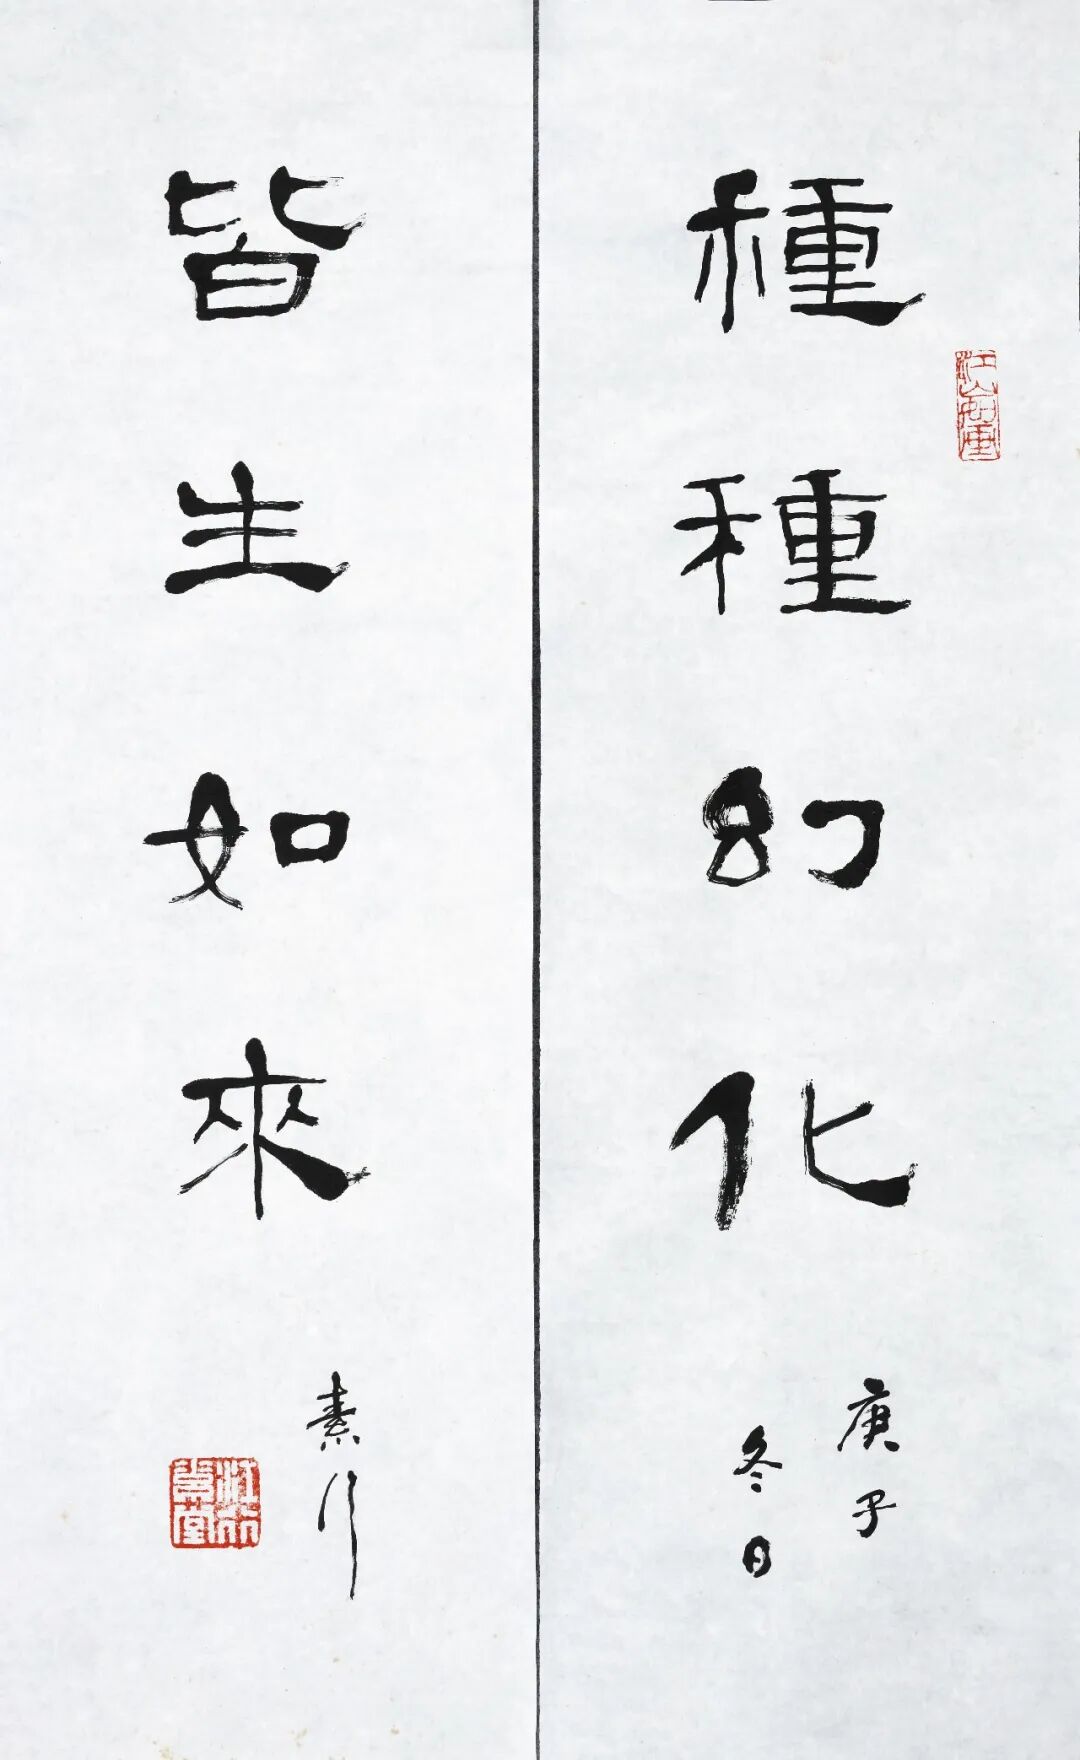 種種幻化
庚子
冬日
皆生如來
素行